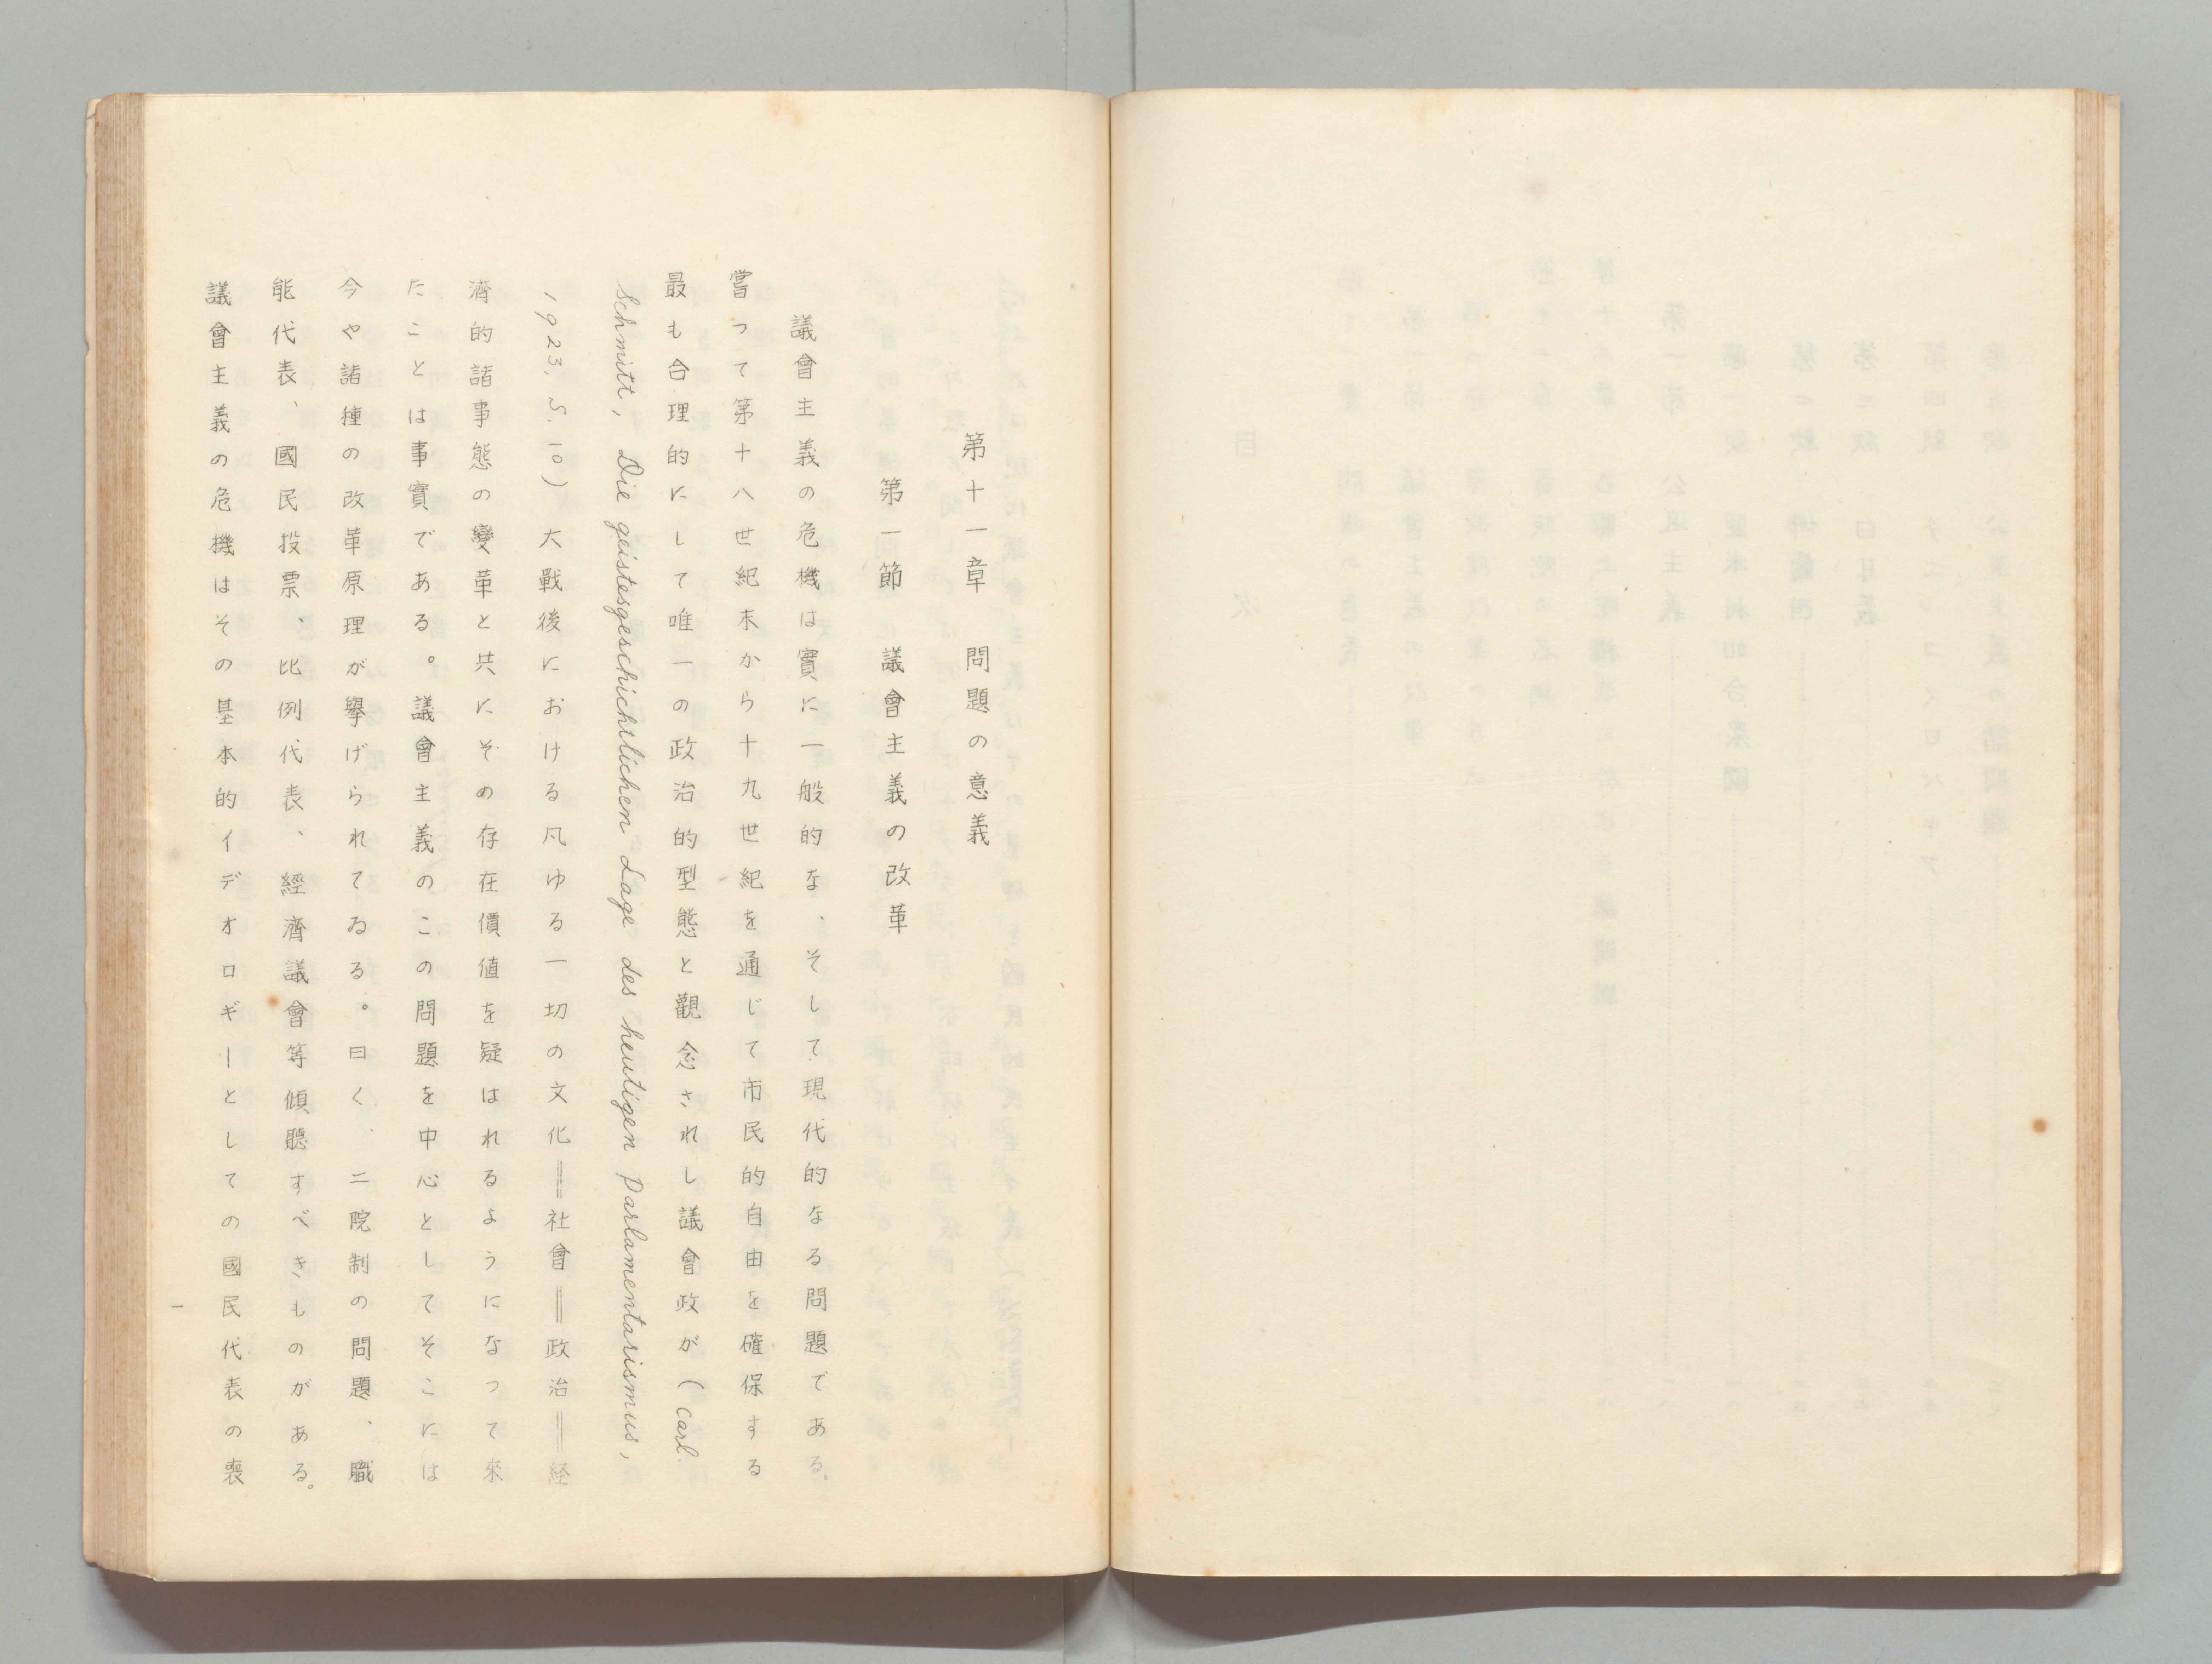 第十一章　問題の意義
第一節　議會主義の改革
議會主義の危機は實に一般的な、そして現代的なる問題である。
嘗つて第十八世紀末から十九世紀を通じて市民的自由を確保する
最も合理的にして唯一の政治的型態と觀念されし議會政が（Carl.
Schmitt, Die geistesgeschichtlichen Lage des heutigen Parlamentarismus,
1923, S.10）大戰後における凡ゆる一切の文化＝社會＝政治＝経
濟的諸事態の變革と共にその存在價値を疑はれるようになつて來
たことは事實である。議會主義のこの問題を中心としてそこには
今や諸種の改革原理が擧げられてゐる。曰く、二院制の問題、職
能代表、國民投票、比例代表、經濟議會等傾聽すべきものがある。
議會主義の危機はその基本的イデオロギーとしての國民代表の喪
一